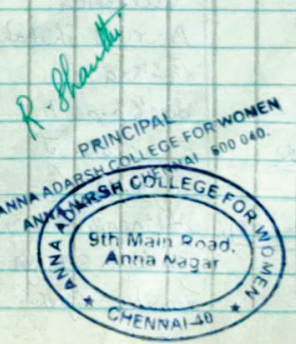 R. Shanthi
PRINCIPAL
ANNA ADARSH COLLEGE FOR WOMEN
ANNA CHENNAI 600 040.
ANNA ADARSH COLLEGE FOR WOMEN
9th Main Road,
Anna Nagar
★ CHENNAI-40 ★